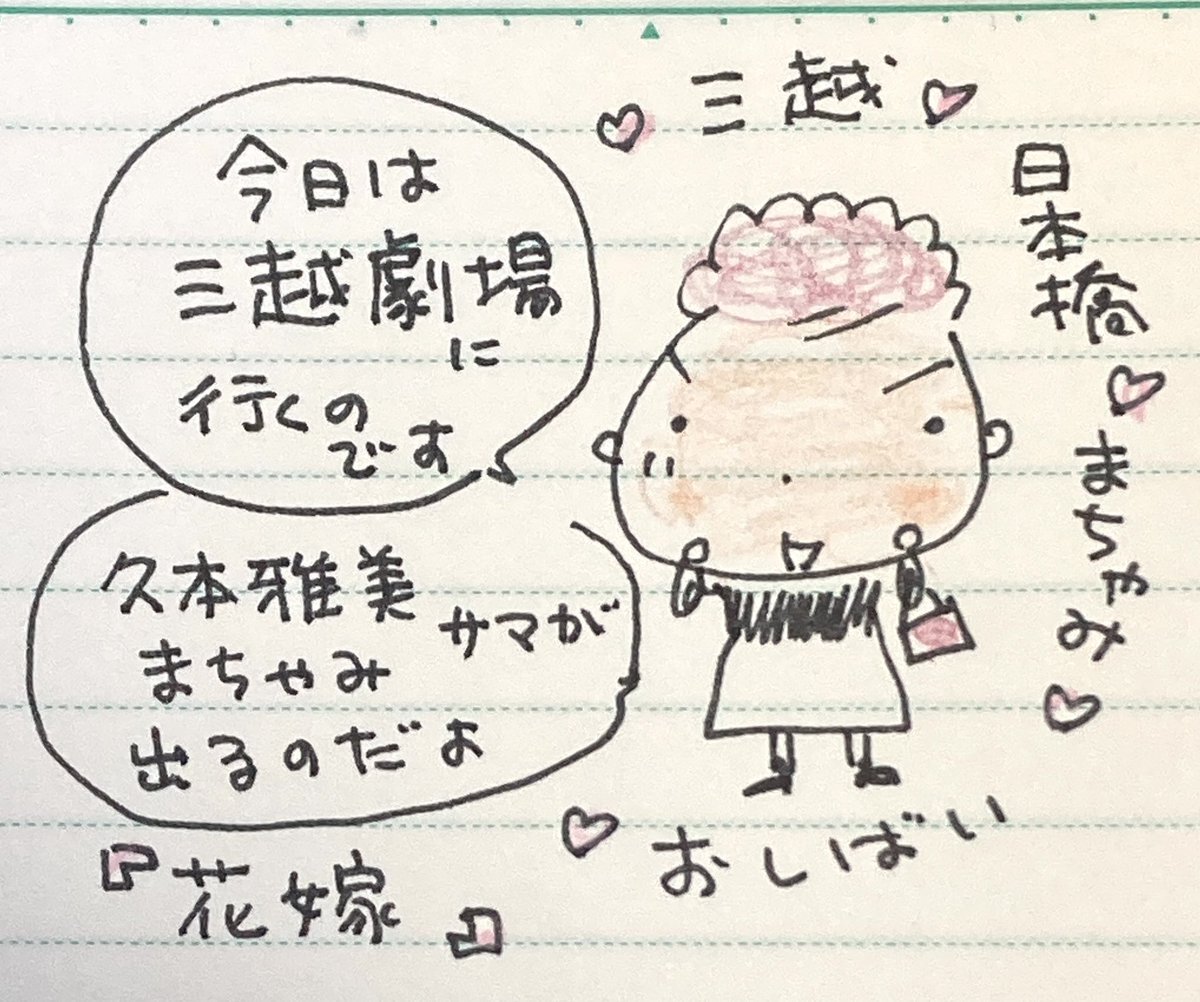 今日は
三越劇場
に
行くの
です
久本雅美
サマが
まちゃみ
出るのだよ
『花嫁』
三越
日本橋
まちゃみ
おしばい